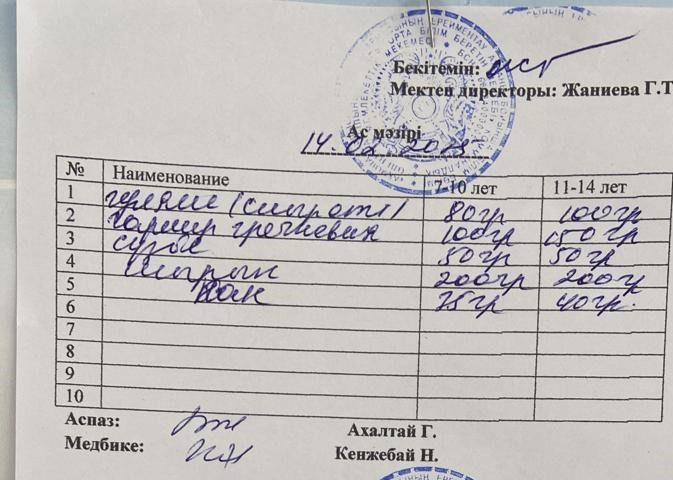 Бекітемін:
Мектеп директоры: Жаниева Г.Т
Ас мәзірі
14.02.2025
№ Наименование 7-10 лет 11-14 лет
1 гуляш (сиыр еті) 80гр 100гр
2 гарнир гречневая 100гр 150гр
3 50гр 50гр
4 Шырын 200гр 200гр
5 Нан 35гр 40гр.
6
7
8
9
10
Аспаз: Ахалтай Г.
Медбике: Кенжебай Н.